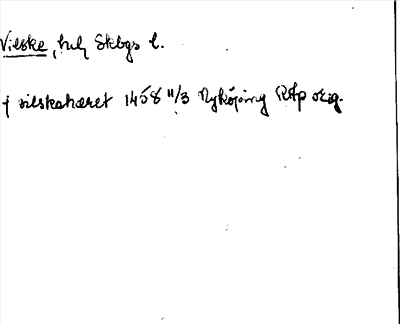 Vilske, hd, Skbgs l.
j vilskehæret 1458 11/3 Nyköping RAp orig.